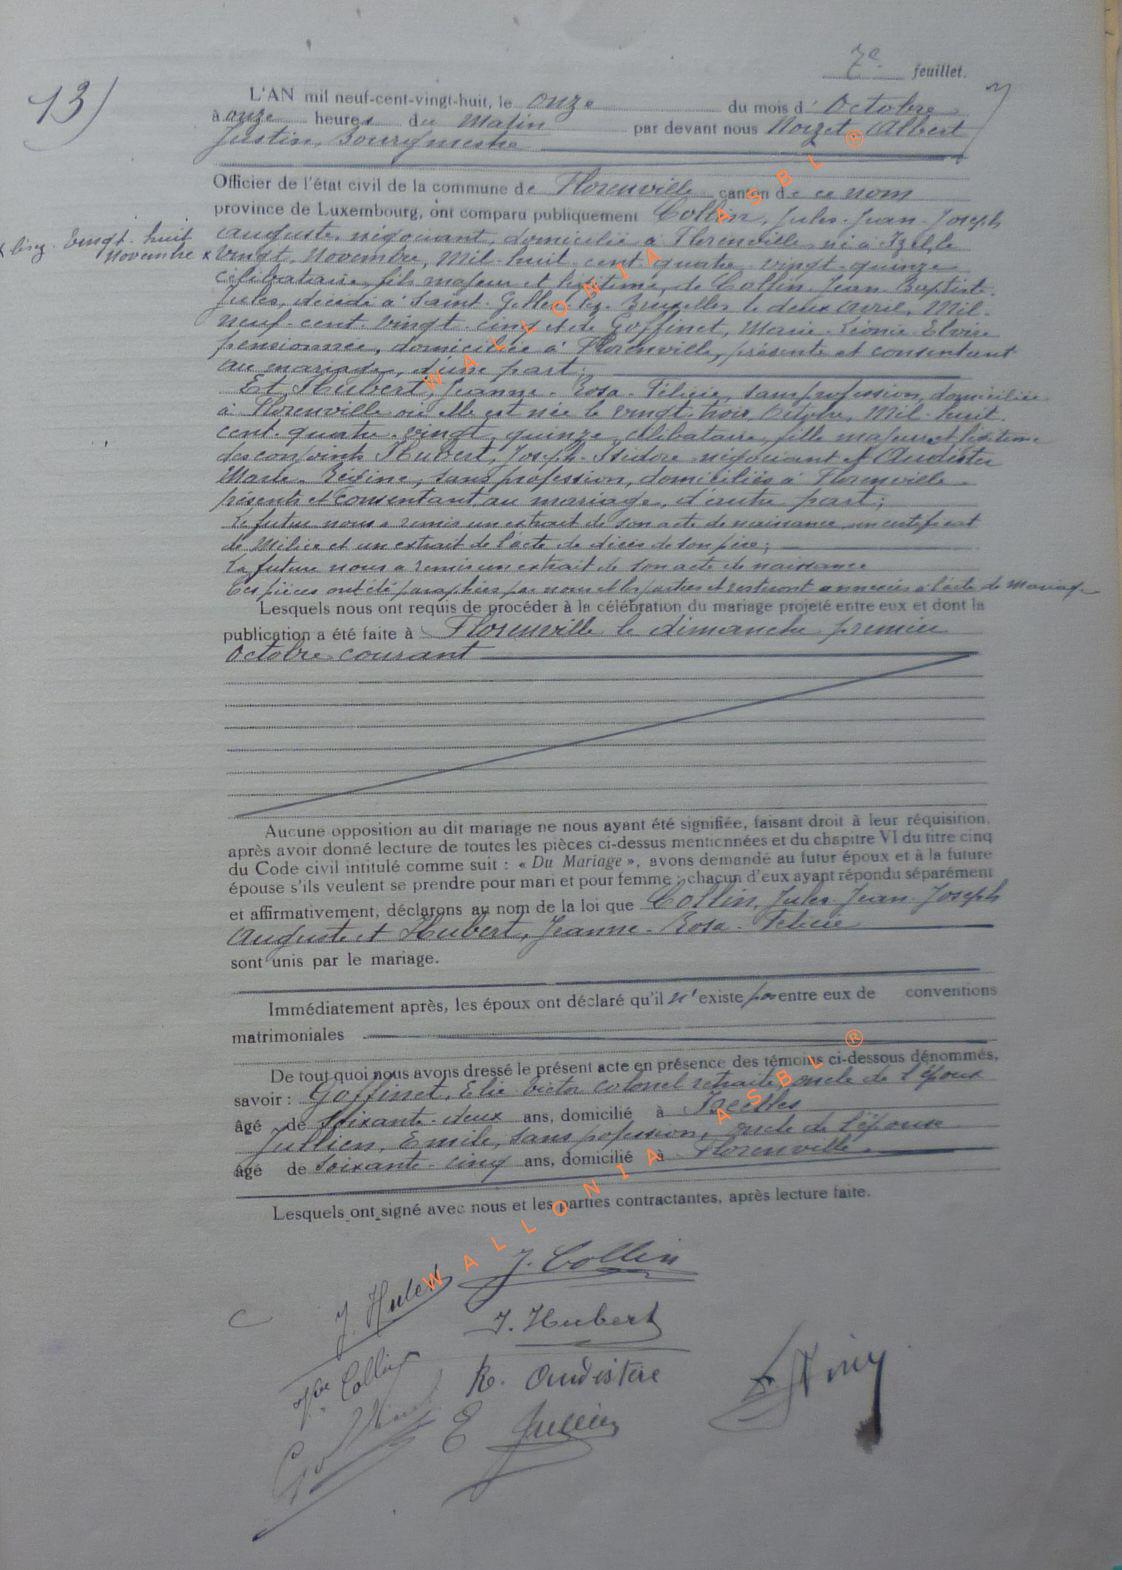 7e feuillet.
13)
L'AN mil neuf-cent-vingt-huit, le onze du mois d' Octobre
à onze heures du Matin par devant nous Noizet Albert
Justin, Bourgmestre
Officier de l'état civil de la commune de Florenville canton de ce nom
province de Luxembourg, ont comparu publiquement Collin, Jules-Jean-Joseph
Auguste, négociant, domicilié à Florenville né à Izel, le
x vingt-huit
Novembre x
vingt, Novembre, Mil-huit-cent-quatre-vingt-quinze
célibataire, fils majeur et légitime, de Collin Jean Baptiste-
Jules, décédé à Saint-Gilles-lez-Bruxelles le deux avril, Mil-
neuf-cent-vingt-cinq et de Goffinet, Marie-Léonie-Elvire
pensionnée, domiciliée à Florenville, présente et consentant
au mariage, d'une part;
Et Hubert, Jeanne-Rosa-Félicie, sans profession, domiciliée
à Florenville où elle est née le vingt trois Octobre, Mil-huit-
cent-quatre-vingt, quinze, célibataire, fille majeure et légitime
des conjoints Hubert, Joseph-Isidore négociant et Oudistère
Marie-Régine, sans profession, domiciliés à Florenville
présents et consentant au mariage, d'autre part;
Le futur nous a remis un extrait de son acte de naissance un certificat
de Milice et un extrait de l'acte de décès de son père;
La future nous a remis un extrait de son acte de naissance
Ces pièces ont été paraphées par nous et les parties et resteront annexées à l'acte de mariage
Lesquels nous ont requis de procéder à la célébration du mariage projeté entre eux et dont la
publication a été faite à Florenville le dimanche premier
Octobre courant
Aucune opposition au dit mariage ne nous ayant été signifiée, faisant droit à leur réquisition,
après avoir donné lecture de toutes les pièces ci-dessus mentionnées et du chapitre VI du titre cinq
du Code civil intitulé comme suit : « Du Mariage », avons demandé au futur époux et à la future
épouse s'ils veulent se prendre pour mari et pour femme ; chacun d'eux ayant répondu séparément
et affirmativement, déclarons au nom de la loi que Collin, Jules-Jean-Joseph
Auguste et Hubert, Jeanne-Rosa-Félicie
sont unis par le mariage.
Immédiatement après, les époux ont déclaré qu'il n'existe pas entre eux de conventions
matrimoniales
De tout quoi nous avons dressé le présent acte en présence des témoins ci-dessous dénommés,
savoir : Goffinet, Elie Victor colonel retraité, oncle de l'époux
âgé de soixante-deux ans, domicilié à Ixelles
Jullien, Emile, sans profession, oncle de l'épouse
âgé de soixante-cinq ans, domicilié à Florenville.
Lesquels ont signé avec nous et les parties contractantes, après lecture faite.
J. Collin
J. Hubert
J. Hubert
Vve Collin
R. Oudistère
E Jullien
WALLONIA ASBL ®
WALLONIA ASBL ®